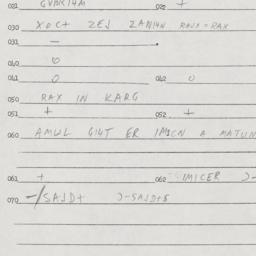 021 GVARI4M 022 +
030 XOC+ ZEJ ZANI4N RAJX=RAX
031 –
040 0
041 0 042 0
050 RAX IN KARG
051 + 052 +
060 AMUL GI4T ER IMICN A MATUN
061 + 062 IMICER )-
070 -/SAJD+ )-SAJD+S